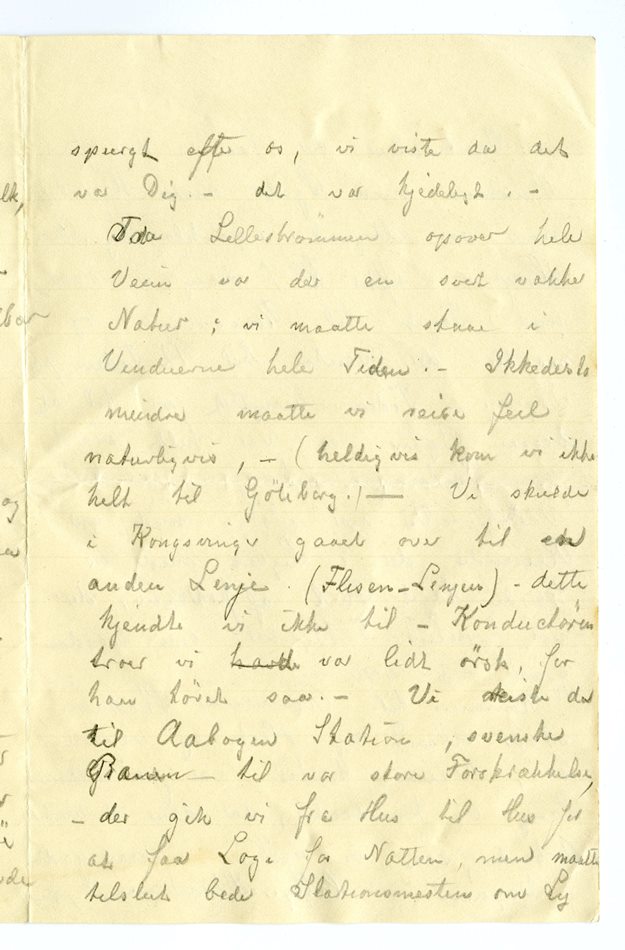 spurgt efter os, vi viste da det
var Dig. – det var kjedeligt. –
Fra Lillestrømmen opover hele
Veien var der en svert vakker
Natur; vi maatte staae i
Vinduerne hele Tiden. – Ikkedesto
mindre maatte vi reise feil
naturligvis, – (heldigvis kom vi ikke
helt til Göteborg.) — Vi skulde
i Kongsvinger gaaet over til en
anden Linje. (Flisen-Linjen) – dette
kjendte vi ikke til – Konductören
troer vi havde var lidt örsk, for
han saa. – Vi reiste da
til Aabogen Station, svenske
Grænsen – til vor store Forskrækkelse,
– der gik vi fra Hus til Hus for
at faa Logi for Natten, men maatte
tilslut bede Stationsmesteren om Ly